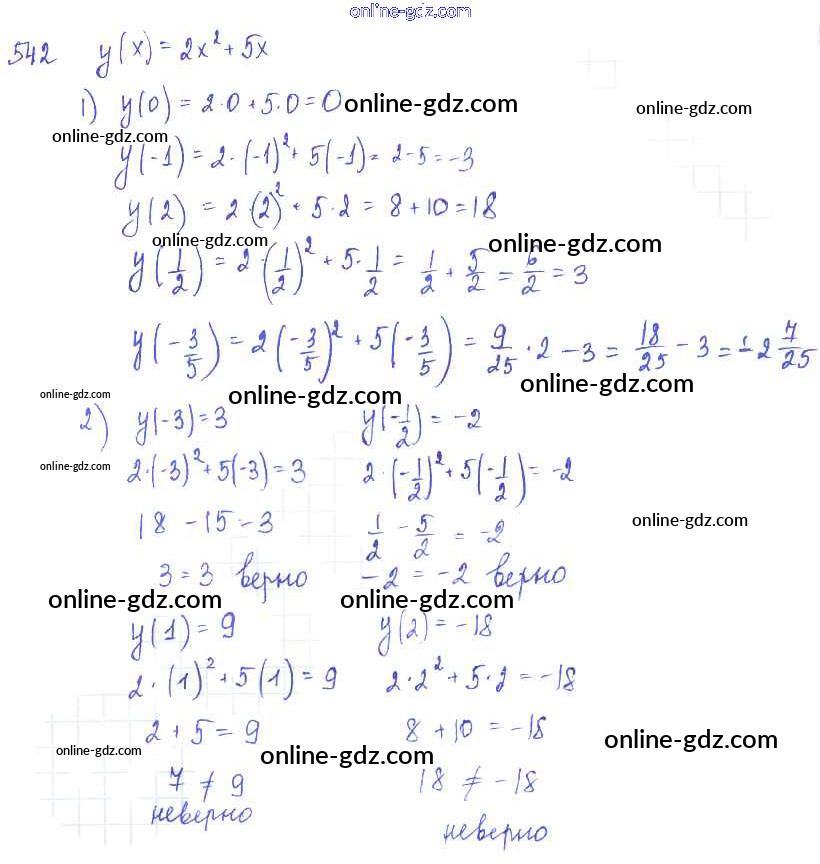 online-gdz.com
542 y(x) = 2x² + 5x
1) y(0) = 2·0 + 5·0 = 0 online-gdz.com
online-gdz.com
online-gdz.com
y(-1) = 2·(-1)² + 5(-1) = 2-5 = -3
y(2) = 2·(2)² + 5·2 = 8 + 10 = 18
online-gdz.com online-gdz.com
y(1/2) = 2·(1/2)² + 5·1/2 = 1/2 + 5/2 = 6/2 = 3
y(-3/5) = 2(-3/5)² + 5(-3/5) = 9/25·2 - 3 = 18/25 - 3 = -2 7/25
online-gdz.com online-gdz.com online-gdz.com
2) y(-3) = 3 y(-1/2) = -2
online-gdz.com
2·(-3)² + 5(-3) = 3 2·(-1/2)² + 5(-1/2) = -2
18 - 15 = 3 1/2 - 5/2 = -2
online-gdz.com
3 = 3 верно -2 = -2 верно
online-gdz.com online-gdz.com
y(1) = 9 y(2) = -18
2·(1)² + 5(1) = 9 2·2² + 5·2 = -18
2 + 5 = 9 8 + 10 = -18
online-gdz.com online-gdz.com online-gdz.com
7 ≠ 9 18 ≠ -18
неверно неверно